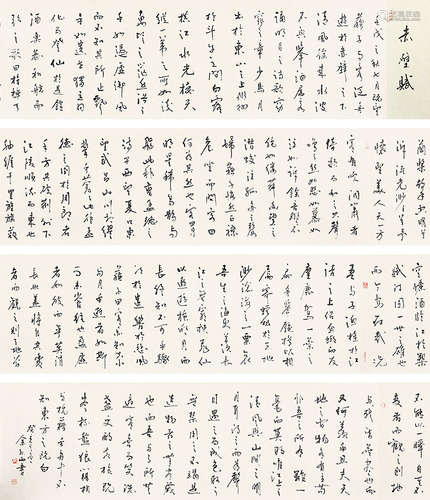 赤壁賦
壬戌之秋七月既望
蘇子與客泛舟
遊於赤壁之下
清風徐來水波
不興舉酒屬客
誦明月之詩歌窈
窕之章少焉月
出於東山之上徘徊
於斗牛之間白露
橫江水光接天
縱一葦之所如凌
萬頃之茫然浩浩
乎如馮虛御風
而不知其所止飄
化而登仙於是飲
酒樂甚扣舷而
歌之歌曰桂棹兮
蘭槳擊空明兮
泝流光渺渺兮予
懷望美人兮天一方
客有吹洞簫者
倚歌而和之其聲
嗚嗚然如怨如慕如
泣如訴餘音裊裊不
絕如縷舞幽壑之
潛蛟泣孤舟之嫠
婦蘇子愀然正襟
危坐而問客曰
何為其然也客曰
月明星稀烏鵲南
飛此非曹孟德之
詩乎西望夏口東
望武昌山川相繆
鬱乎蒼蒼此非孟
德之困於周郎者
乎方其破荊州下
江陵順流而東也
舳艫千里旌旗蔽
空釃酒臨江橫槊
賦詩固一世之雄也
而今安在哉況
吾與子漁樵於江
渚之上侶魚蝦而友
麋鹿駕一葉之
扁舟舉匏樽以相
屬寄蜉蝣於天地
渺滄海之一粟哀
吾生之須臾羨長
江之無窮挾飛仙
以遨遊抱明月而
長終知不可乎驟
得託遺響於悲風
蘇子曰客亦知夫水
與月乎逝者如斯
而未嘗往也盈虛
者如彼而卒莫消
長也蓋將自其變
者而觀之則天地曾
不能以一瞬自其不
變者而觀之則物
與我皆無盡也而
又何羨乎且夫天
地之間物各有主
苟非吾之所有
清風與山間之明
月耳得之而為聲
目遇之而成色取之
無禁用之不竭是
造物者之無盡藏
也而吾與子之所
共適客喜而笑洗
盞更酌肴核既盡
杯盤狼藉相
與枕藉乎舟中不
知東方之既白